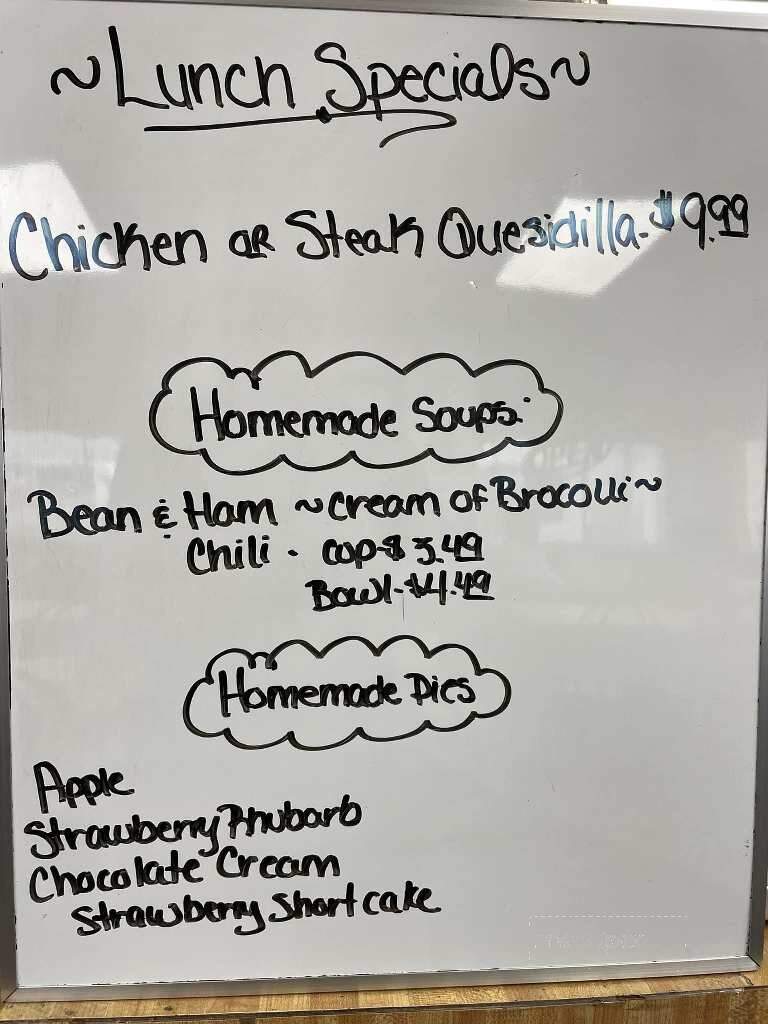 ~Lunch Specials~
Chicken or Steak Quesidilla-$9.99
Homemade Soups:
Bean & Ham ~Cream of Brocolli~
Chili - cup-$3.49
Bowl-$4.49
Homemade Pies
Apple
Strawberry Rhubarb
Chocolate Cream
Strawberry Shortcake